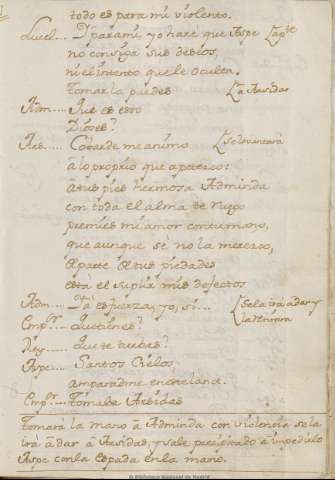 todo es para mi violento.
Lucel... Y para mi, yo haré que Aspe [apte
no consiga sus deseos,
ni el intento que le oculta.
Tomarla puedes [a Arsidas
Adm.... Que es esto
Dioses?
Ars..... Cobarde me animo [Se levantará
a lo proprio que apetezco:
a tus pies hermosa Adminda
con toda el alma te ruego
premies mi amor con tu mano,
que aunque se no la merezco,
es parte de tus piedades
está el suplir mis defectos
Adm.... La es fuerza; yo, si... [se la irá a dar y
la retirara
Emp.... Que tienes?
Rey.... que te turbas?
Aspe.... Santos Cielos
amparadme en este lance.
Emp.... Tomala Arsidas
Tomará la mano a Adminda con violencia se la
irá a dar a Arsidas, y sale precipitado a impedirlo
Aspe con la espada en la mano.
© Biblioteca Nacional de España